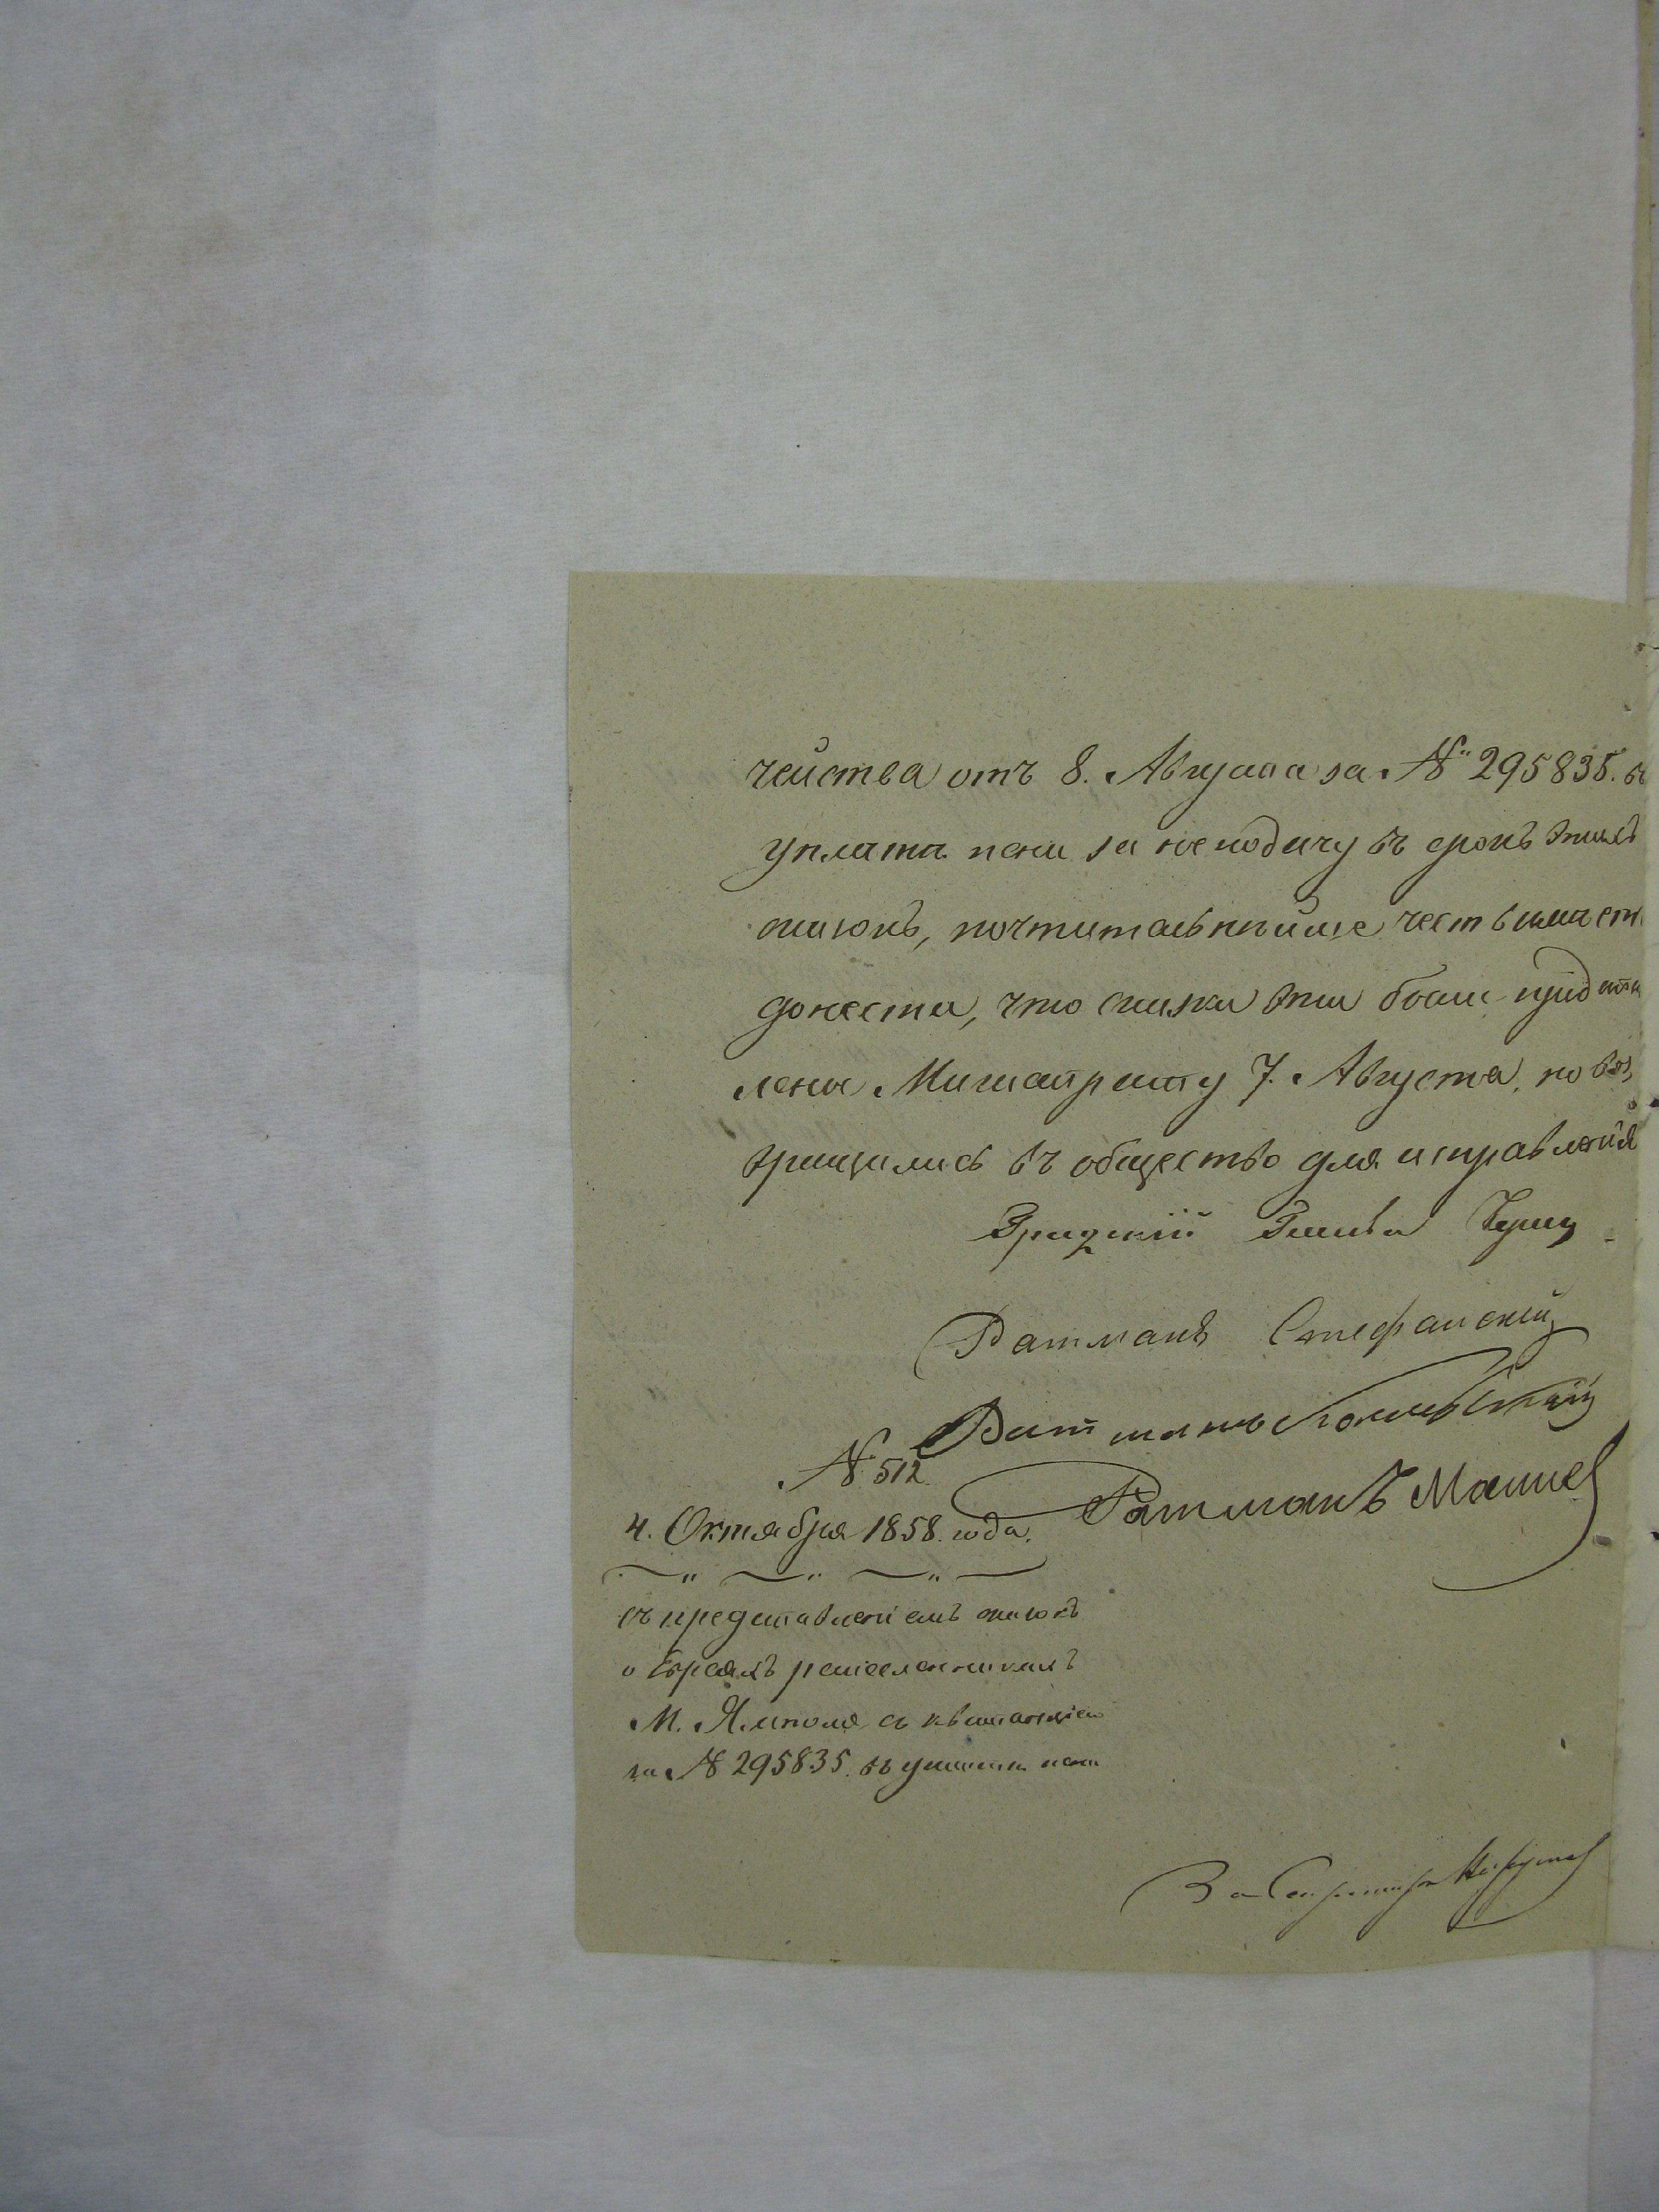 чейства отъ 8. Августа за №295835. въ
уплатѣ пени за неподачу въ срокъ этихъ
сказокъ, почтительнѣйше честь имѣетъ
донести, что сказки эти были представ
лены Магистрату 7. Августа, но воз,
вращались въ общество для исправленія
Градскій Глава
Ратманъ Стефанскій
Ратманъ
№ 512
Ратманъ
4. Октября 1858. года.
съ представленіемъ сказокъ
о Евреяхъ
М. Ямполя съ квитанціею
за № 295835. въ уплатѣ пени
За Секретаря